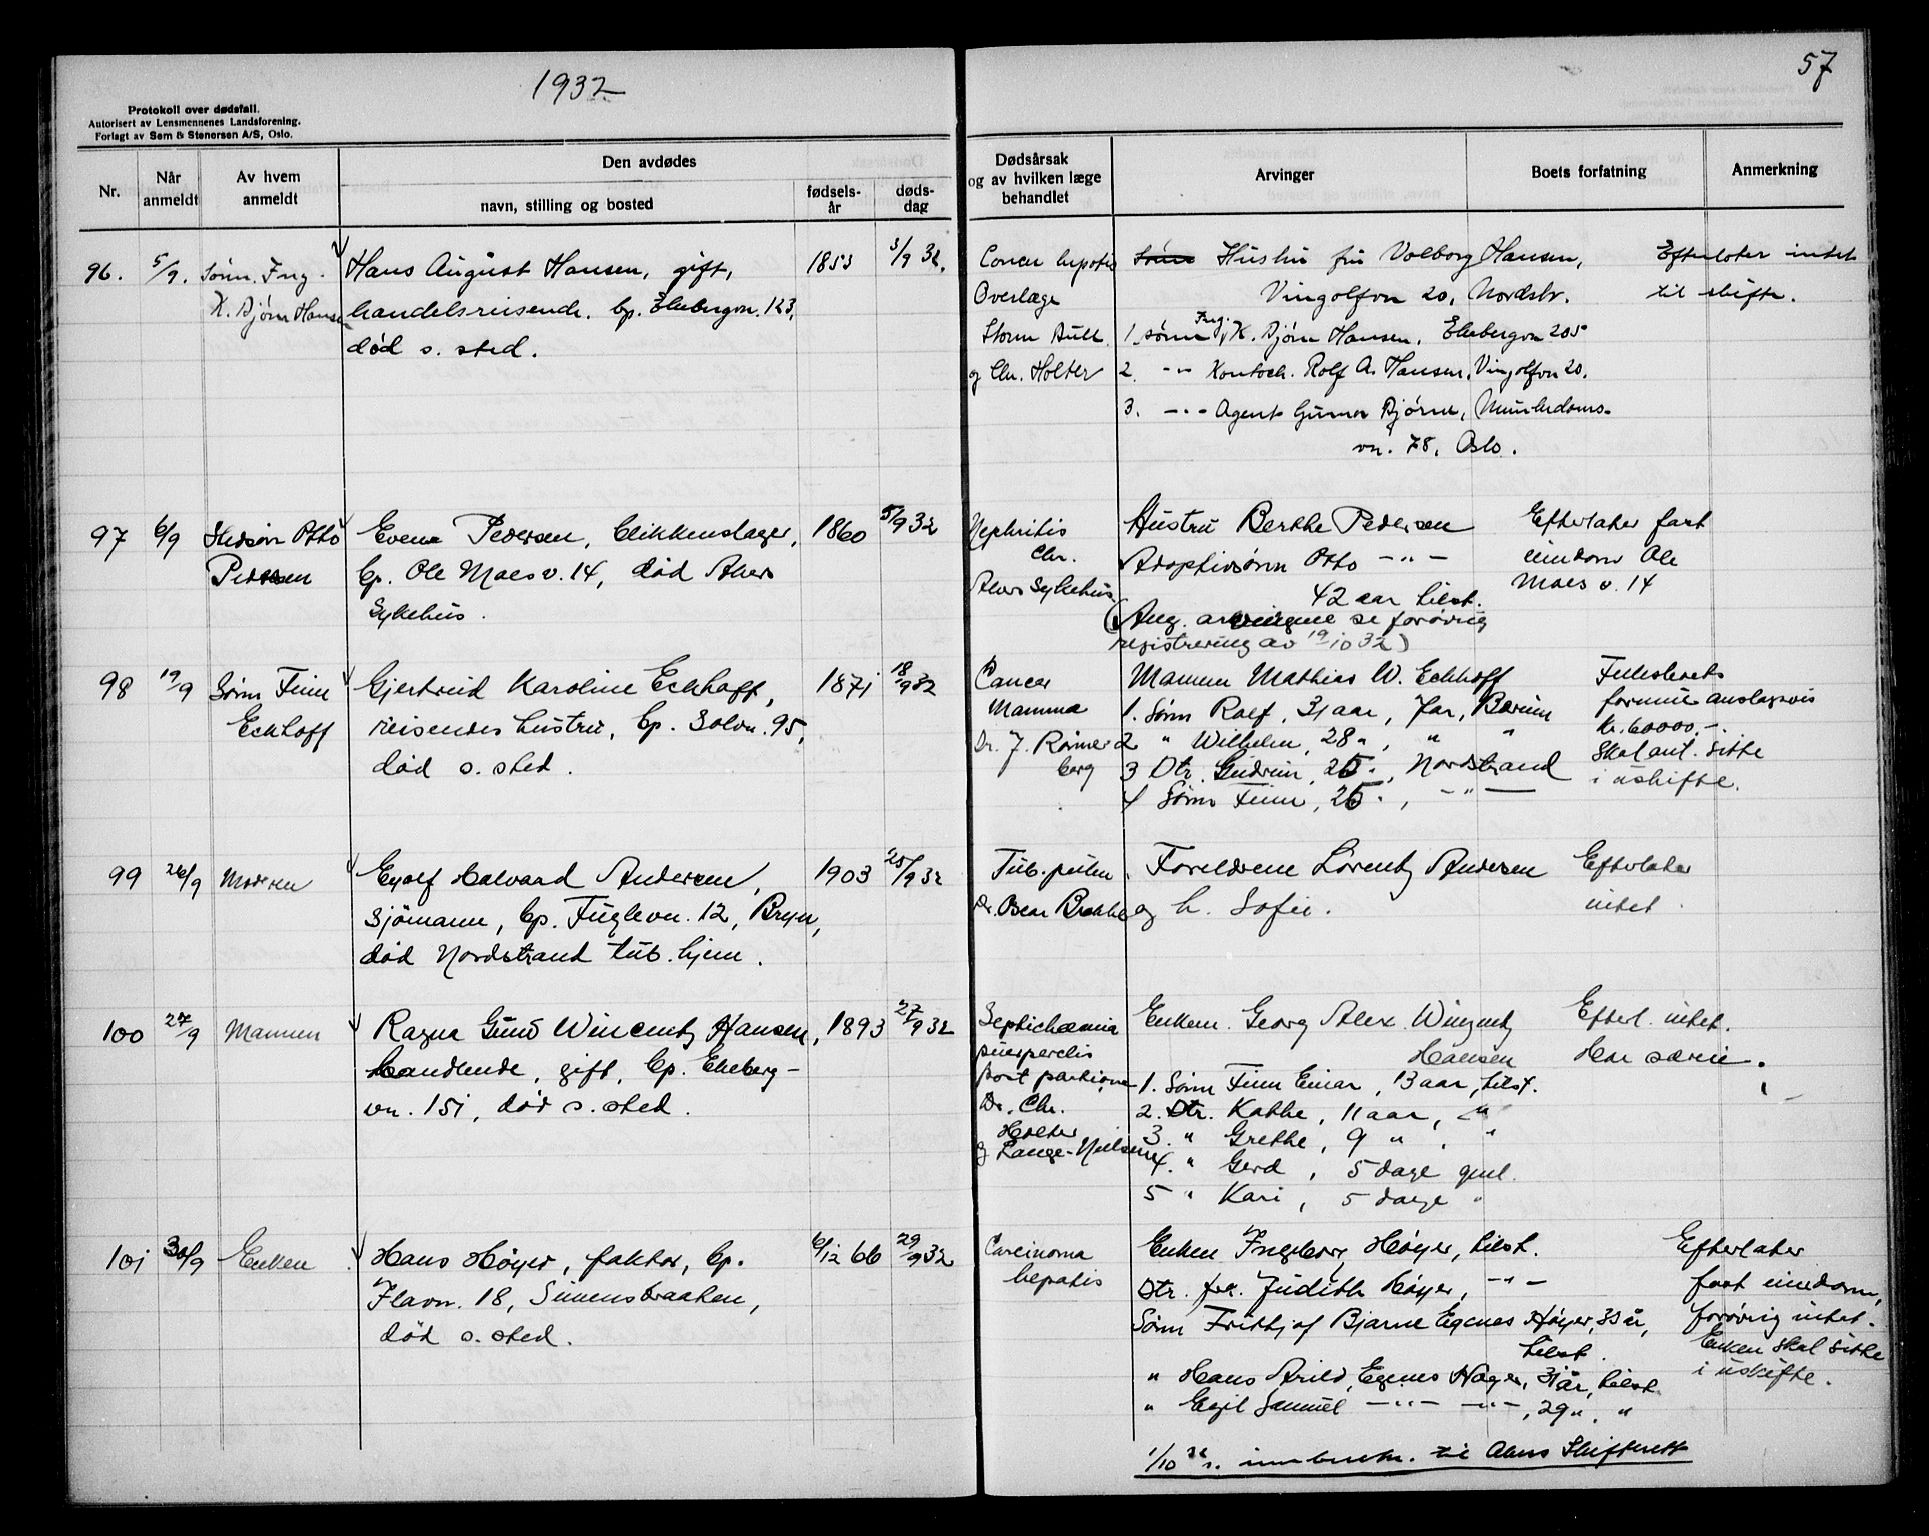 1932
57
Protokoll over dødsfall.
Autorisert av Lensmennenes Landsforening.
Forlagt av Sem & Stenersen A/S, Oslo.
Nr.
Når anmeldt
Av hvem anmeldt
Den avdødes
navn, stilling og bosted
fødsels-år
døds-dag
Dødsårsak og av hvilken læge behandlet
Arvinger
Boets forfatning
Anmerkning
96. 5/9. Sønn. Ing.
K. Bjørn Hansen
Hans August Hansen, gift,
handelsreisende. bp. Ekebergvn. 123,
død s. sted.
1853 3/9 32.
Cancer hepatis
Overlæge
Storm Bull
og Chr. Holter
Hustru fru Valborg Hansen,
Vingolfvn 20, Nordstr.
1. sønn Ing. K. Bjørn Hansen, Ekebergvn 205
2. -"- Kontorch. Rolf A. Hansen, Vingolfvn 20.
3. -"- Agent Gunnar Bjørn, Munkedams-
vn. 78, Oslo.
Efterlater intet
til skifte.
97 6/9 Stedsøn Otto
Pedersen
Even Pedersen, blikkenslager,
bp. Ole Moes v. 14, død Akers
Sykehus.
1860 5/9 32
Nephritis
Chr.
Akers Sykehus.
Hustru Berthe Pedersen
Adoptivsønn Otto -"-
42 aar tilst.
(Ang. arvingene se forøvrig
registrering av 19/10 32)
Efterlater fast
eiendom Ole
Moes v. 14
98 19/9 Sønn Finn
Eckhoff
Gjertrud Karoline Eckhoff,
reisendes hustru, bp. Solvn. 95,
død s. sted.
1871 18/9 32
Cancer
Mamma
Dr. J. Rømer
berg
Mannen Mathias W. Eckhoff
1. Sønn Rolf, 31 aar, Jar, Bærum
2 " Wilhelm, 28 ", " "
3 Dtr. Gudrun, 25 ", Nordstrand
4 Sønn Finn, 25 ", -"-
Fellesboets
formue anslagsvis
Kr. 60000.-
Skal ant. sitte
i uskifte.
99 26/9 Moderen
Eyolf Halvard Andersen,
sjømann, bp. Fuglevn. 12, Bryn,
død Nordstrand tub. hjem.
1903 25/9 32
Tub. pulm.
Dr. Oscar Brekke
Foreldrene Lorentz Andersen
og h. Sofie.
Efterlater
intet.
100 27/9 Mannen
Ragna Gund Wincentz Hansen,
handlende, gift, bp. Ekeberg-
vn. 151, død s. sted.
1893 27/9 32
Septichæmia
puerperalis
post partum
Dr. Chr.
Holter
og Lange-Nielsen
Enkem. Georg Alex. Wincentz
Hansen
1. Sønn Finn Einar, 13 aar, tilst.
2. Dtr. Kathe, 11 aar, "
3. " Grethe, 9 ", "
4. " Gerd, 5 dage gml.
5 " Kari, 5 dage "
Efterl. intet.
Har særeie.
101 30/9 Enken
Hans Høyer, faktor, bp.
Flavn. 18, Simensbraaten,
død s. sted.
6/12 66 29/9 32
Carcinoma
hepatis
Enken Ingeborg Høyer, tilst.
Dtr. frk. Judith Høyer, -"-
Sønn Fritjof Bjarne Egenes Høyer, 33 år,
tilst.
" Hans Arild Egenes Høyer, 31 år, tilst.
" Egil Samuel -"- -"-, 29 ", "
1/10 32 s. innberetn. til Akers Skifterett
Efterlater
fast eiendom,
forøvrig intet.
Enken skal sitte
i uskifte.